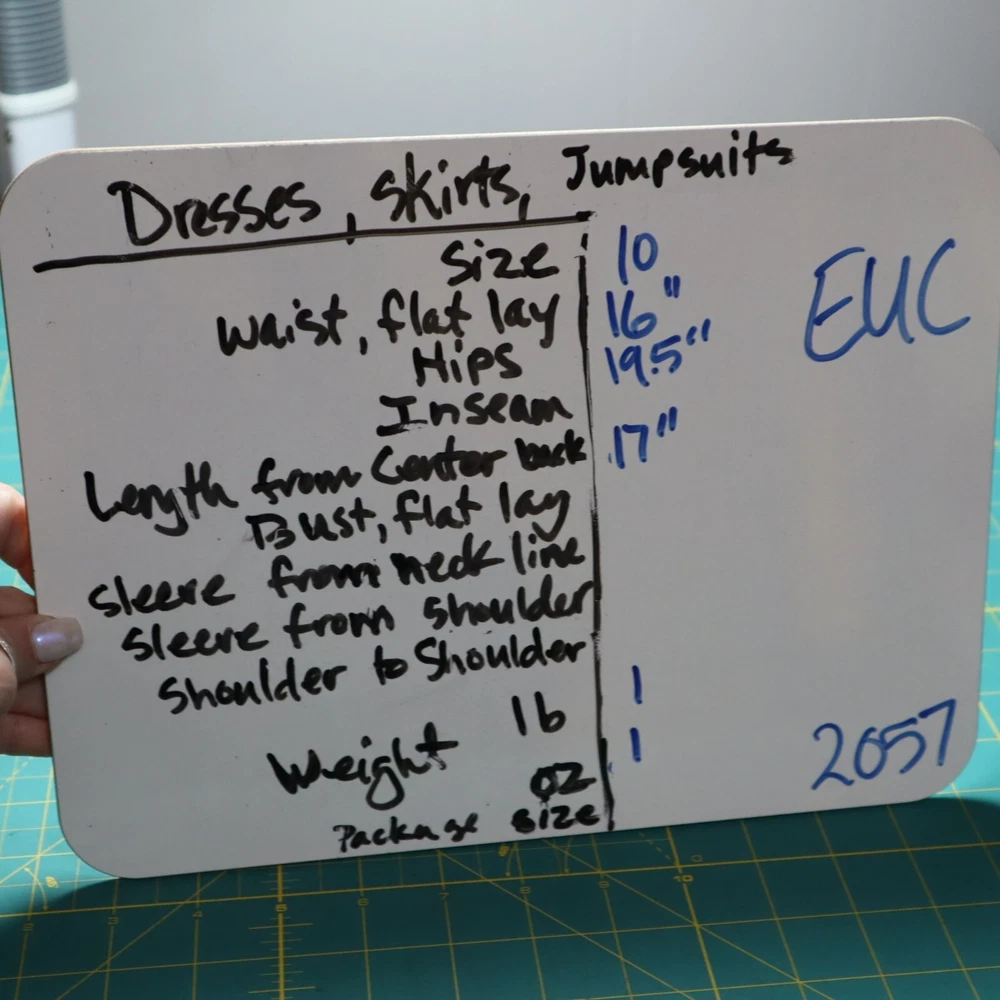 Dresses, skirts, Jumpsuits
Size 10
Waist, flat lay 16" EUC
Hips 19.5"
Inseam
Length from Center back 17"
Bust, flat lay
Sleeve from neck line
Sleeve from shoulder
Shoulder to Shoulder
Weight lb 1
oz 1 2057
Package size
2 3 4 5 6 7 8 9 10